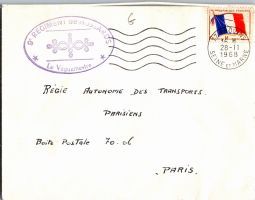 6
Le Vaguemestre
28-11
1968
SEINE ET MARNE
RÉGIE AUTONOME DES TRANSPORTS
PARISIENS
BOITE POSTALE 70.06
PARIS.